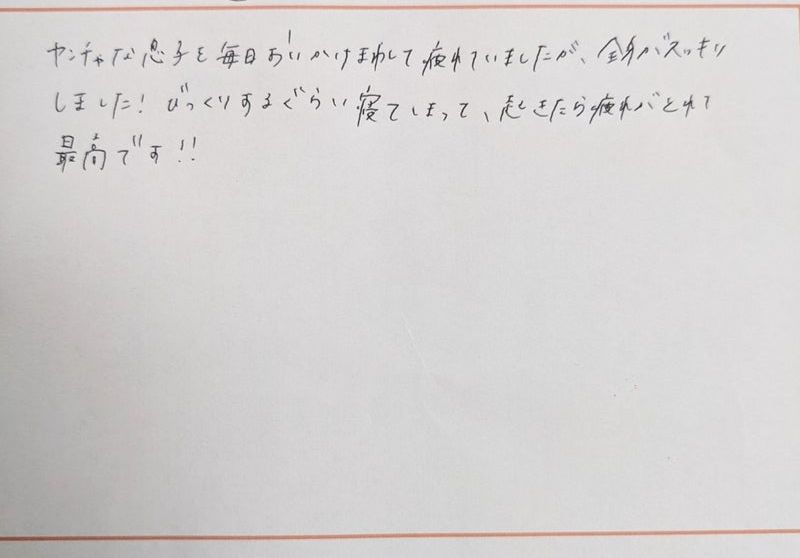 ヤンチャな息子を毎日おいかけまわして疲れていましたが、全身がスッキリ
しました！びっくりするぐらい寝てしまって、起きたら疲れがとれて
最高です!!